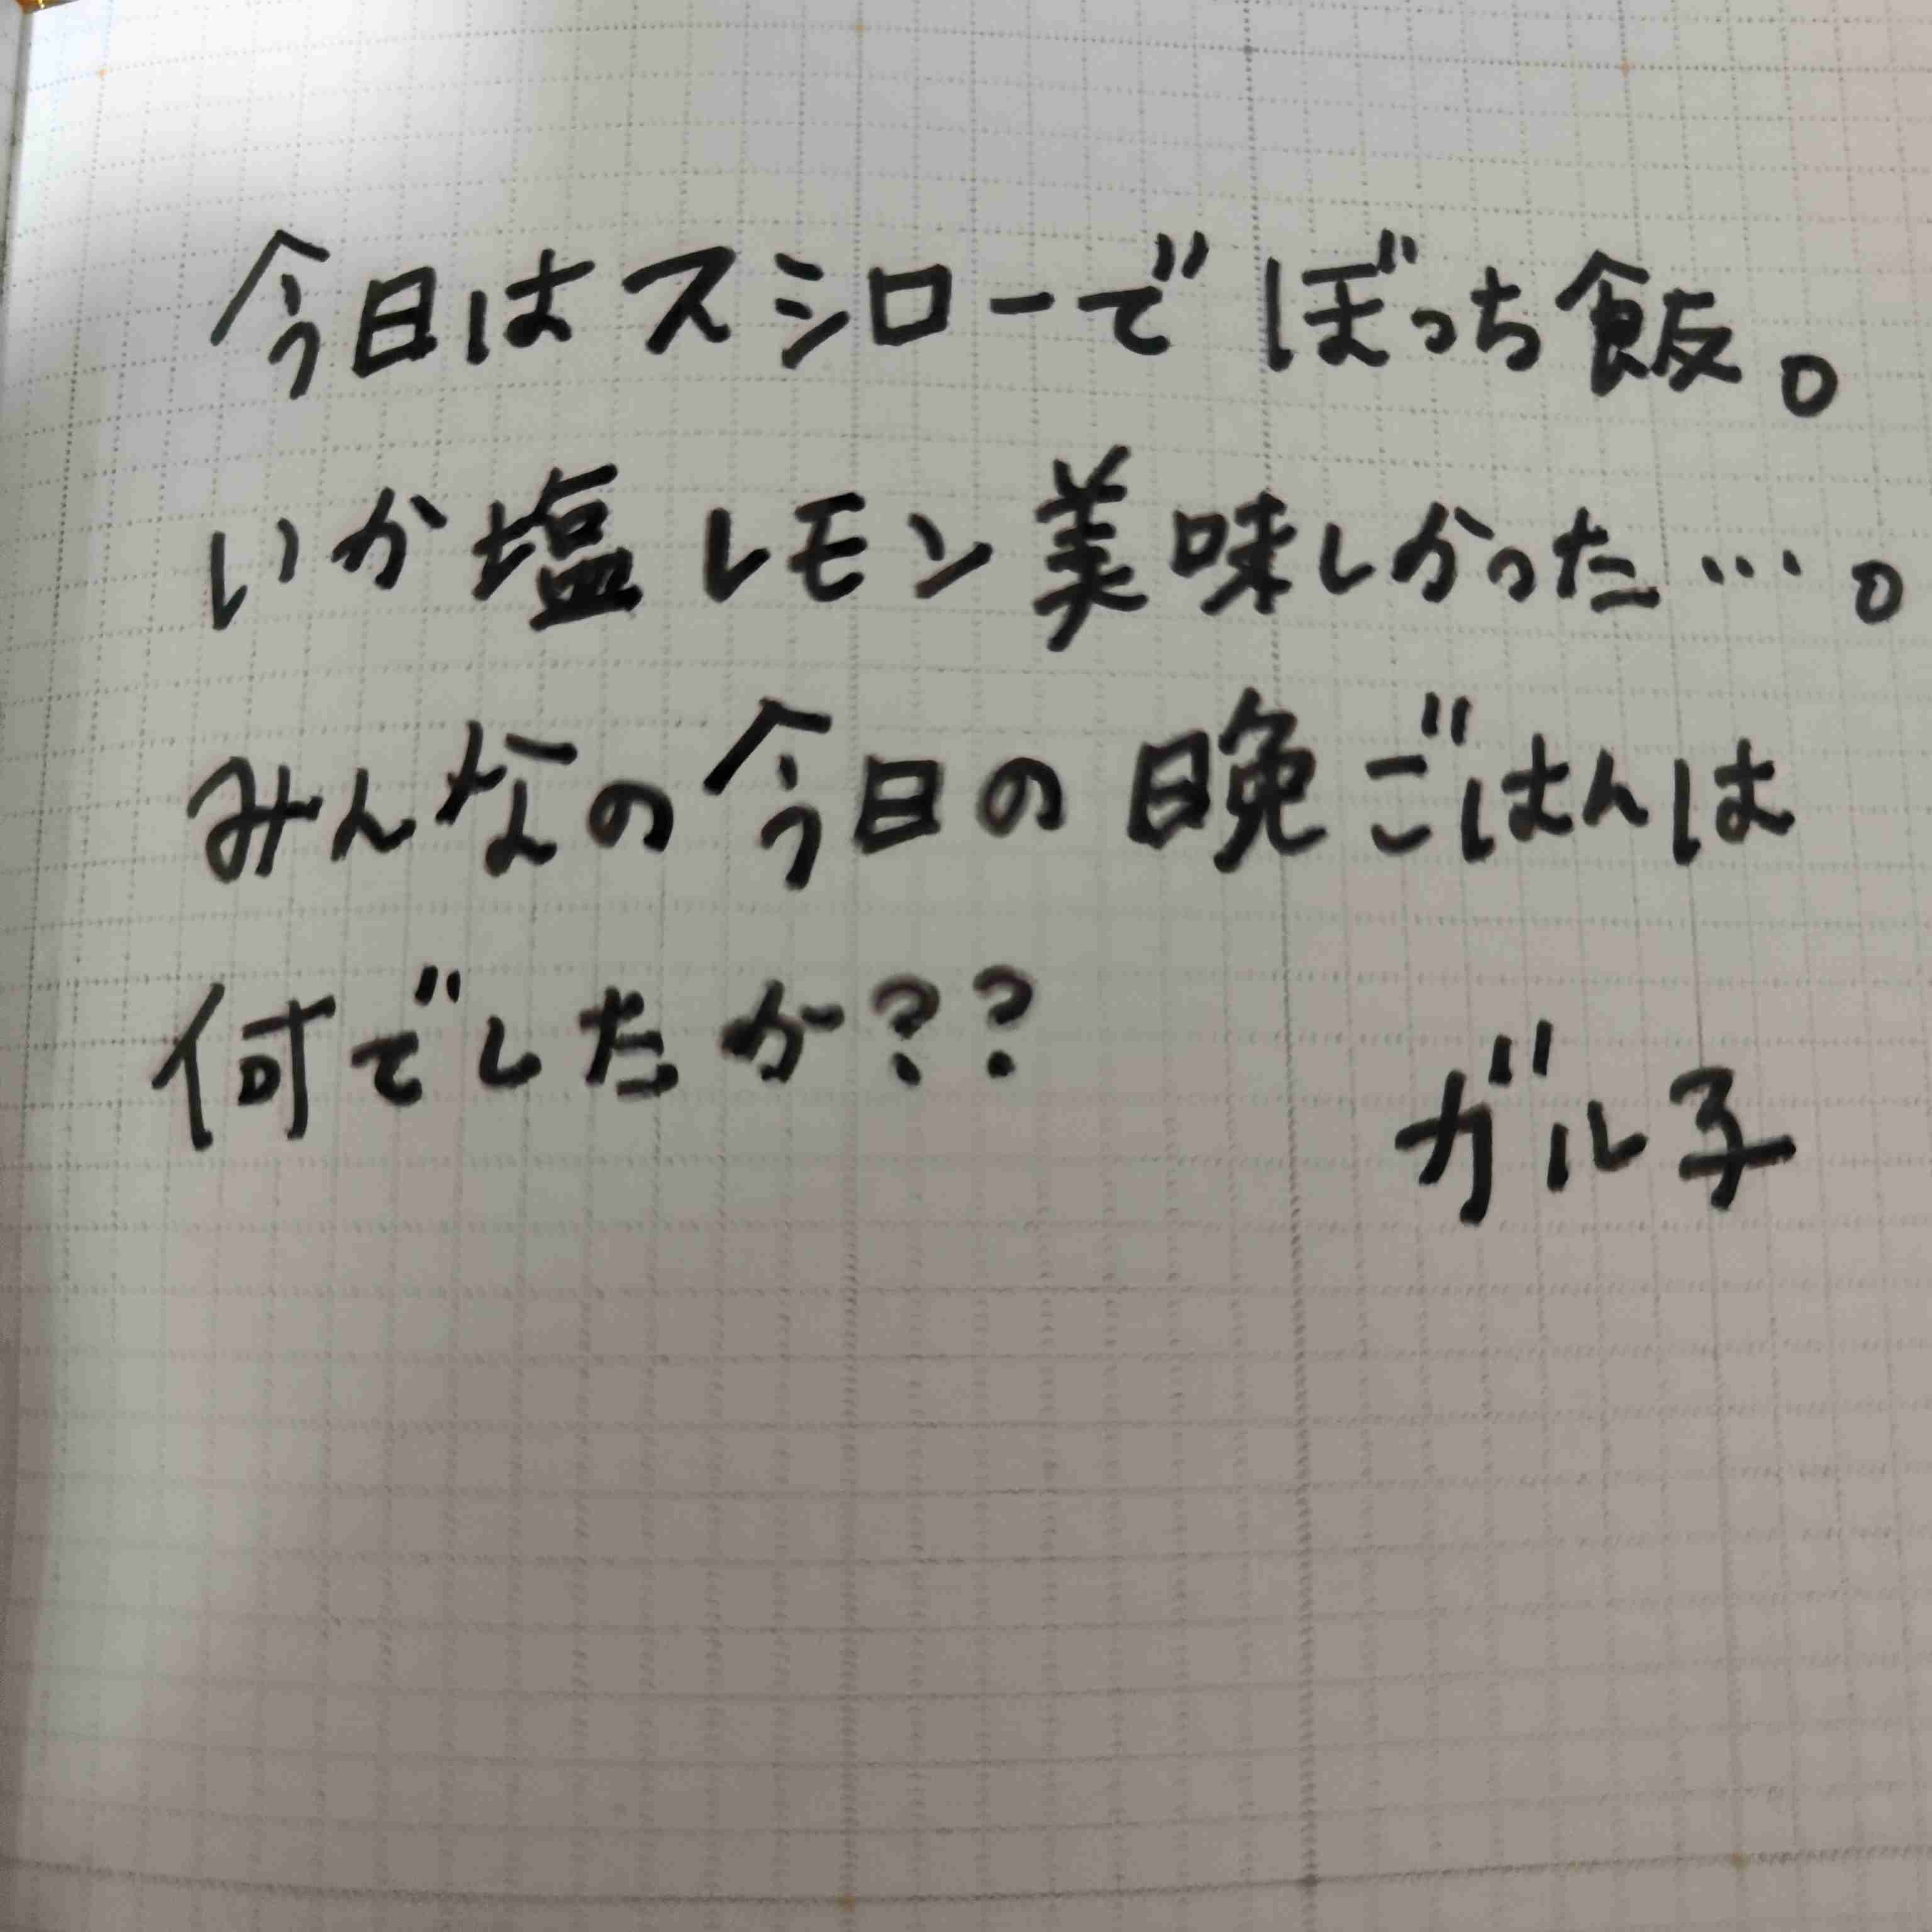 今日はスシローでぼっち飯。
いか塩レモン美味しかった…。
みんなの今日の晩ごはんは
何でしたか??
ガル子